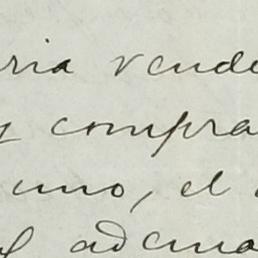 ria vende
y compra
uno, el
adema